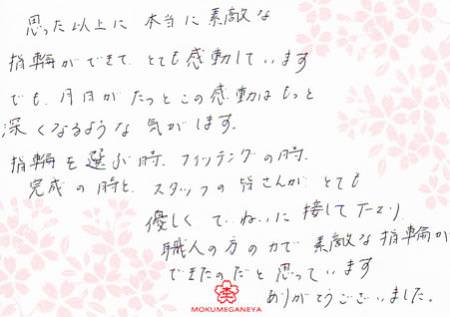 思った以上に 本当に素敵な
指輪ができて、とても感動しています
でも、月日がたつとこの感動はもっと
深くなるような気がします。
指輪を選ぶ時、フィッティングの時、
完成の時と、スタッフの皆さんがとても
優しくていねいに接して下さり
職人の方の力で素敵な指輪が
できたのだと思っています
ありがとうございました。
MOKUMEGANEYA